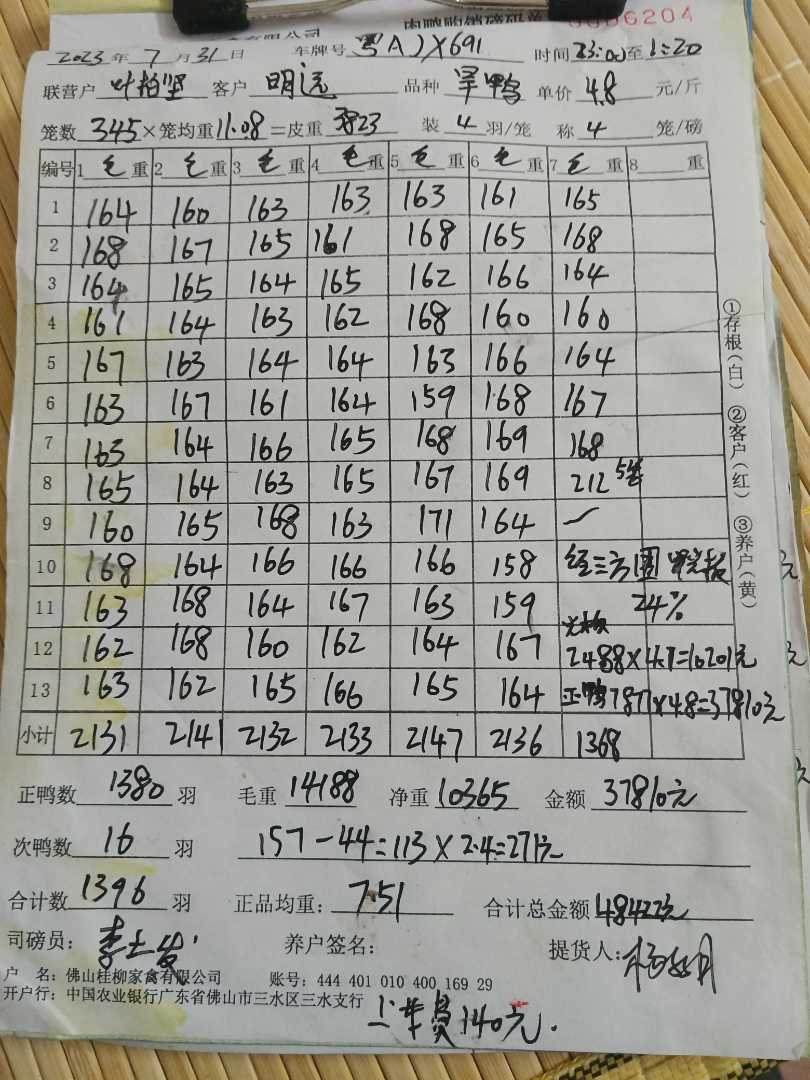 肉鸭购销磅码单 0006204
2023年7月31日 车牌号 粤A 时间 23:00至1:20
联营户 叶柏坚 客户 明远 品种 单价 4.8 元/斤
笼数 345×笼均重 11.08=皮重 3823 装 4 羽/笼 称 4 笼/磅
编号 1 毛 重 2 毛 重 3 毛 重 4 毛 重 5 毛 重 6 毛 重 7 毛 重 8 重
1 164 160 163 163 163 161 165
2 168 167 165 161 168 165 168
3 164 165 164 165 162 166 164
4 161 164 163 162 168 160 160
5 167 163 164 164 163 166 164
6 163 167 161 164 159 168 167
7 163 164 166 165 168 169 168
8 165 164 163 165 167 169 212 5笼
9 160 165 168 163 171 164
10 168 164 166 166 166 158 经三方
11 163 168 164 167 163 159 24%
12 162 168 160 162 164 167 2488×4.1=10201元
13 163 162 165 166 165 164 正鸭7877×4.8=37810元
小计 2131 2141 2132 2133 2147 2136 1368
正鸭数 1380 羽 毛重 14188 净重 10365 金额 37810元
次鸭数 16 羽 157-44=113×2.4=271元
合计数 1396 羽 正品均重: 7.51 合计总金额 48422元
司磅员: 养户签名: 提货人:
户 名: 佛山桂柳家禽有限公司 账号: 444 401 010 400 169 29
开户行: 中国农业银行广东省佛山市三水区三水支行
上车费140元.
①存根(白) ②客户(红) ③养户(黄)